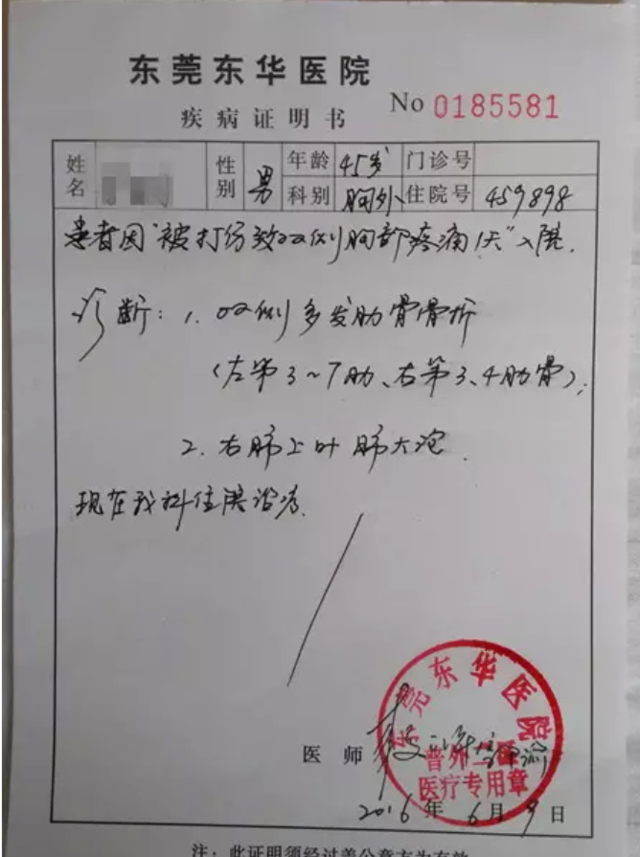 东莞东华医院
疾病证明书
No 0185581
姓名 性别 男 年龄 45岁 门诊号
科别 胸外 住院号 459898
患者因"被打伤致双侧胸部疼痛1天"入院.
诊断: 1. 双侧多发肋骨骨折
(左第3~7肋、右第3、4肋骨);
2. 右肺上叶肺大泡.
现在我科住院治疗.
东莞东华医院
普外二
医疗专用章
医师
2016年6月9日
注:此证明须经过盖公章方为有效